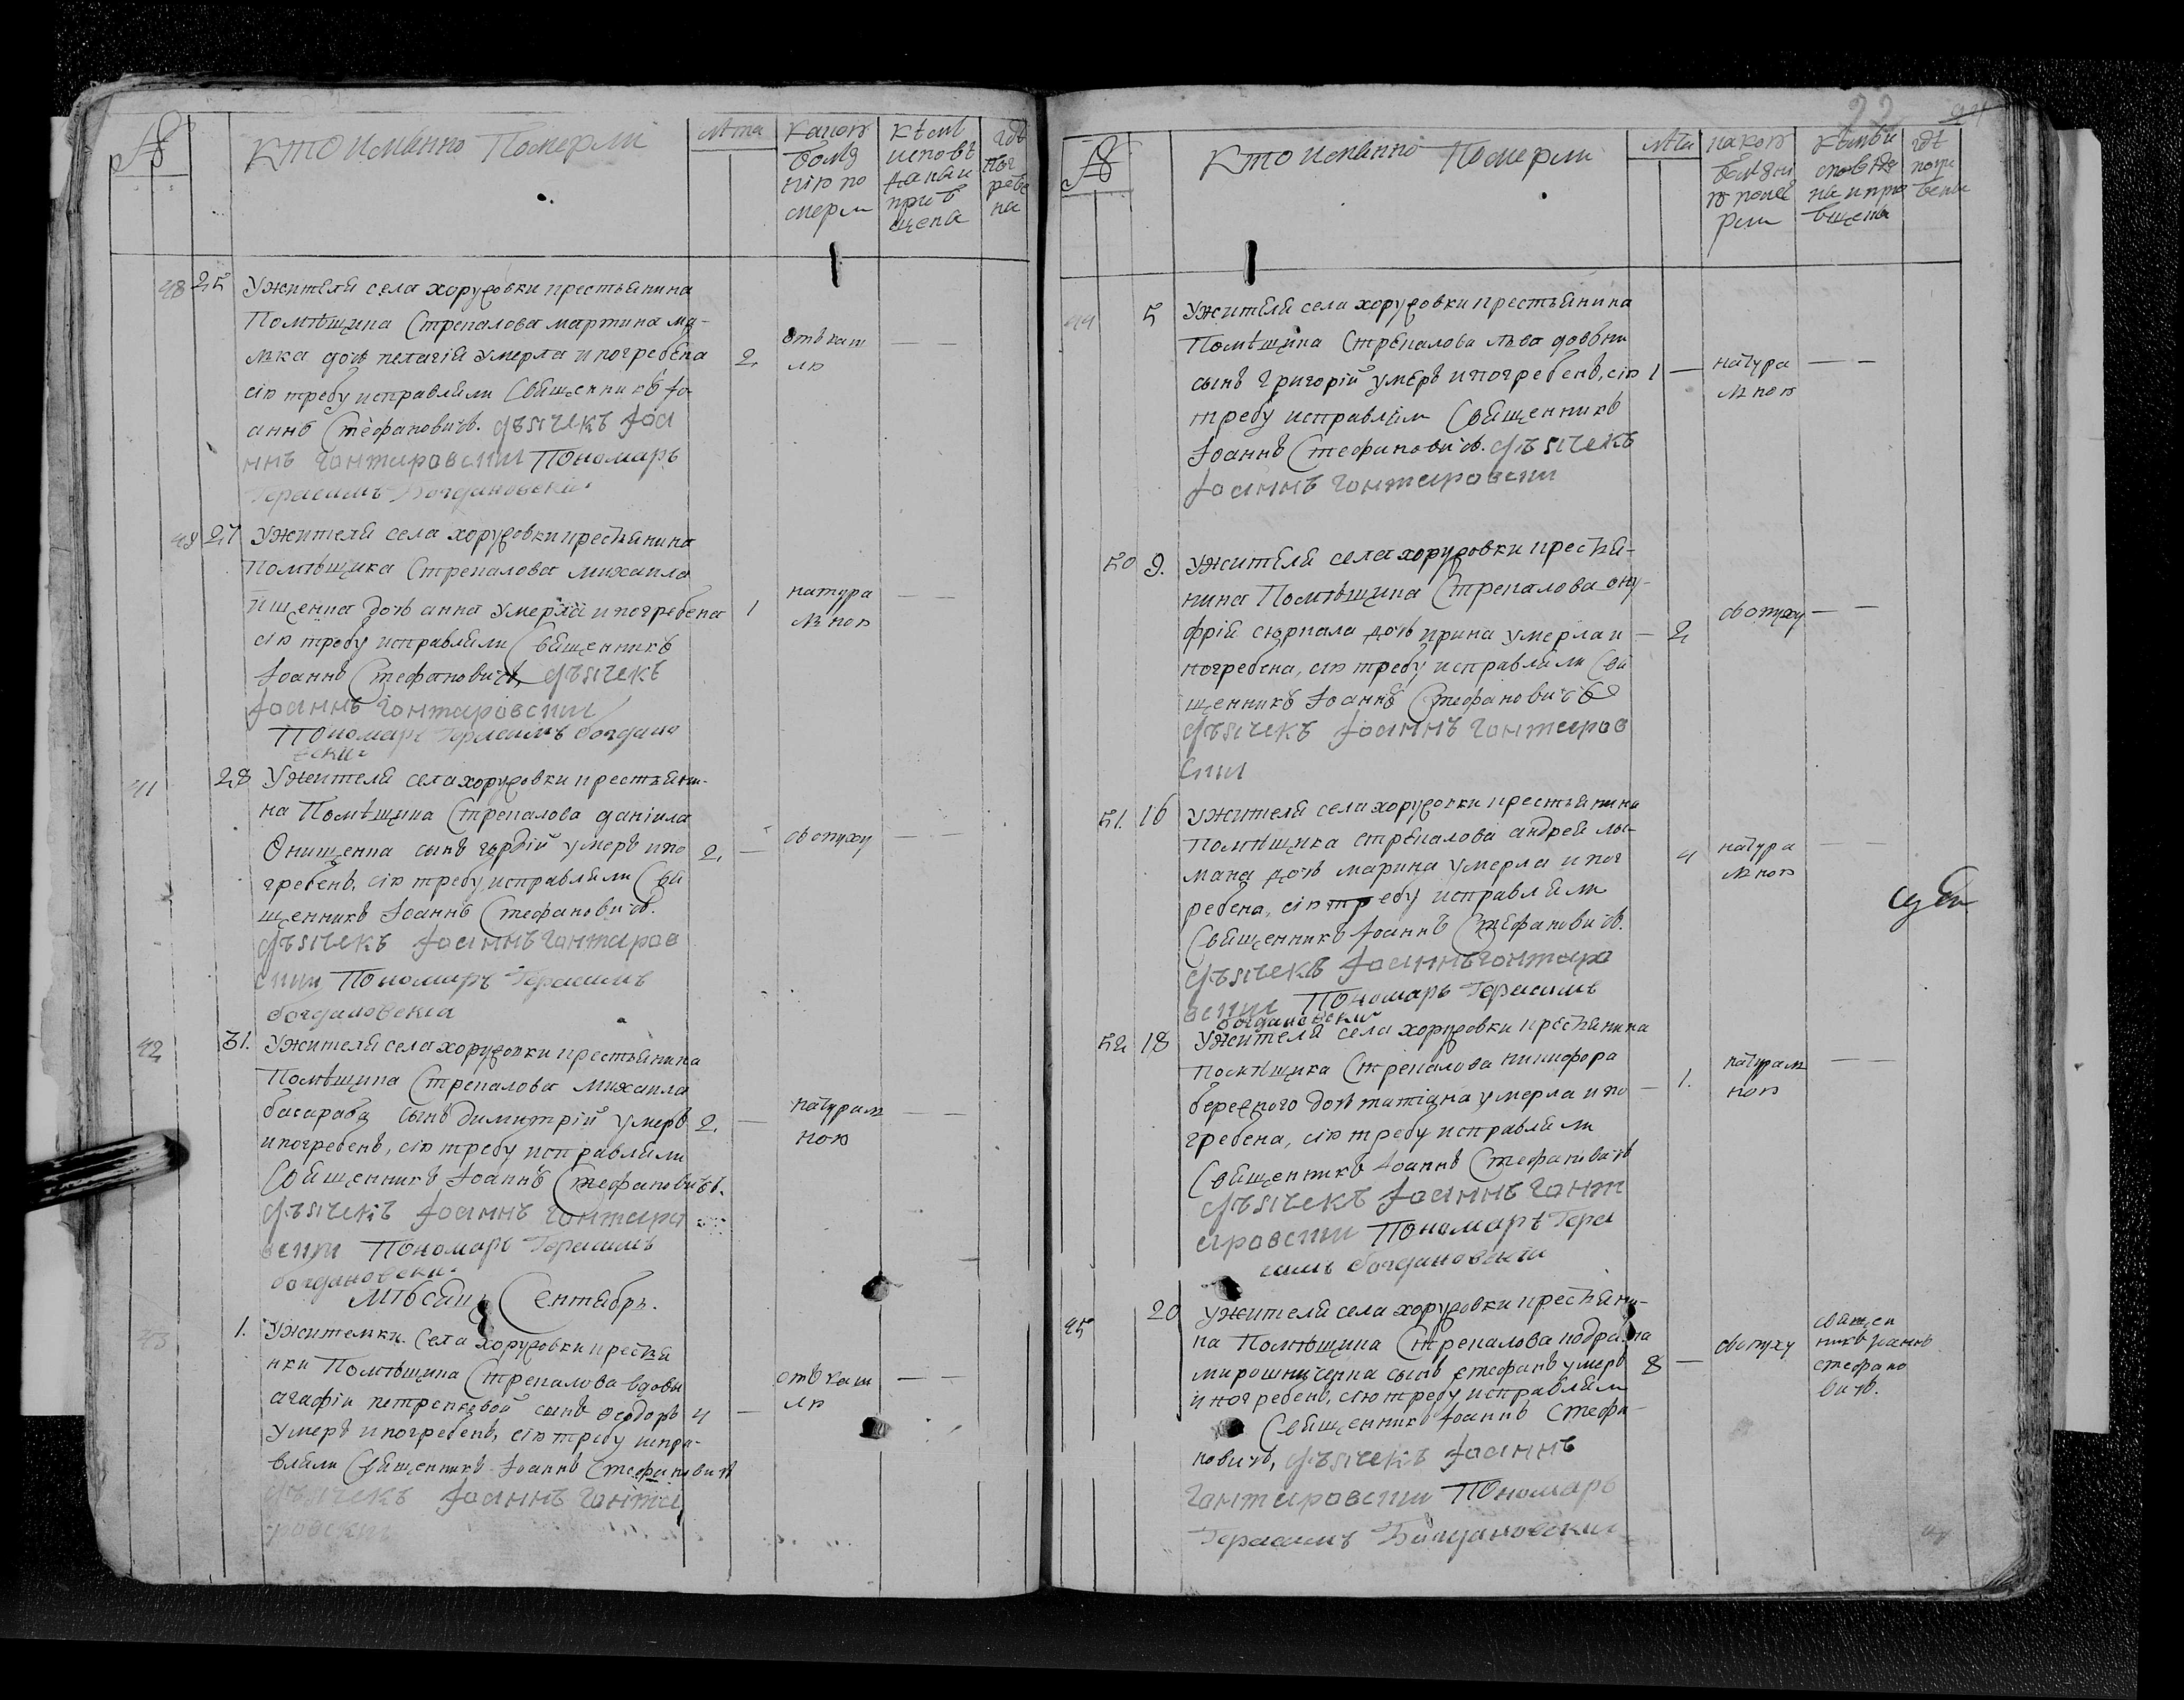 №
Кто именно Померли
лѣта
какою
болѣз
нію по
мерли
кѣмъ
исповѣ
даны и
приѣ
щена
гдѣ
пог
ребе
на
48 25 У жителя села хоружовки крестьянина
Помѣщика Стрепалова мартина
дочь пелагія умерла и погребена
2
отъ каш
лю
сію требу исправляли Священникъ Іо
аннъ Стефановичъ. дьячекъ Іоа
ннъ Гонтаровскии Пономарь
Герасимъ Богдановскій
27 У жителя села хоружовки крестьянина
Помѣщика Стрепалова михаила
дочь анна умерла и погребена
1
натура
лною
сію требу исправляли Священникъ
Іоаннъ Стефановичъ, дьячекъ
Іоаннъ Гонтаровскии
Пономарь Герасимъ богдано
вскии
41 28 У жителя села хоружовки крестьяни-
на Помѣщика Стрепалова даніила
Онищенка сынъ гордій умеръ и по
2. —
съ опуху
гребенъ, сію требу исправляли Свя
щенникъ Іоаннъ Стефановичъ.
дьячекъ Іоаннъ Гонтаров
скии Пономарь Герасимъ
богдановскиа
42 31. У жителя села хоружовки крестьянина
Помѣщика Стрепалова михаила
басараба сынъ димитрій умеръ
2. —
натурал
ною
и погребенъ, сію требу исправляли
Священникъ Іоаннъ Стефановичъ.
дьячекъ Іоаннъ Гонтаро
вскии Пономарь Герасимъ
богдановски
Мѣсяцъ Сентябрь.
43 1. У жителки села хоружовки крестья
нки Помѣщика Стрепалова вдовы
агафіи петренковой сынъ ѳеодоръ
4 —
отъ каш
лю
умеръ и погребенъ, сію требу испра-
вляли Священникъ Іоаннъ Стефановичъ
дьячекъ Іоаннъ Гонта
ровскии
22
№
Кто именно Померли
лѣта
какою
болѣзні
ю поме
рли
кѣмъ и
сповѣда
на и при
ѣщена
гдѣ
погре
бены
5 У жителя села хоружовки крестьянина
Помѣщика Стрепалова льва
сынъ григорій умеръ и погребенъ, сію
1 —
натура
лною
требу исправляли Священникъ
Іоаннъ Стефановичъ. дьячекъ
Іоаннъ Гонтаровскии
50 9. У жителя села хоружовки крестья-
нина Помѣщика Стрепалова ону-
фрій дочь ирина умерла и
— 2
съ опуху
погребена, сію требу исправляли Свя
щенникъ Іоаннъ Стефановичъ
дьячекъ Іоаннъ Гонтаров
скии
51. 16 У жителя села хоружовки крестьянина
Помѣщика стрепалова андрей лы-
мана дочь марина умерла и пог
4
натура
лною
ребена, сію требу исправляли
Священникъ Іоаннъ Стефановичъ.
дьячекъ Іоаннъ гонтаро
вскии Пономарь Герасимъ
богдановскии
52 18 У жителя села хоружовки крестьянина
Помѣщика Стрепалова никифора
бережного дочь татіана умерла и по
— 1.
натурал
ною
гребена, сію требу исправляли
Священникъ Іоаннъ Стефановичъ
дьячекъ Іоаннъ Гонт
аровскии Пономарь Гера
симъ богдановскиа
20 У жителя села хоружовки крестьяни-
на Помѣщика Стрепалова кодрата
мирошниченка сынъ стефанъ умеръ
8 —
съ опуху
священ
никъ Іоаннъ
стефано
вичъ.
и погребенъ, сію требу исправляли
Священникъ Іоаннъ Стефа-
новичъ, дьячекъ Іоаннъ
Гонтаровскии Пономарь
Герасимъ Богдановскии